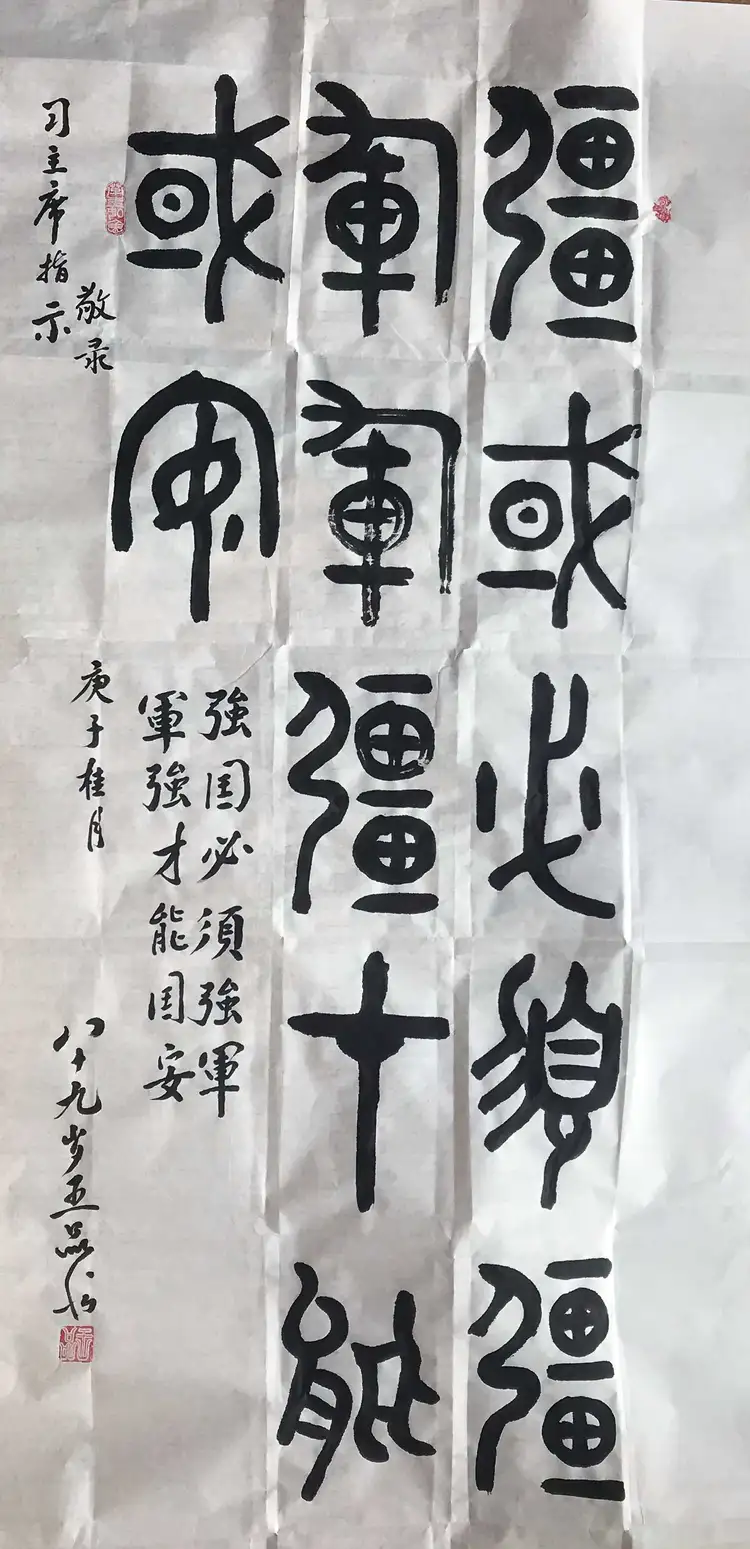 彊或必須彊
軍軍彊才能
或安
強国必須強軍
軍強才能国安
习主席指示
敬录
庚子桂月
八十九岁王品书